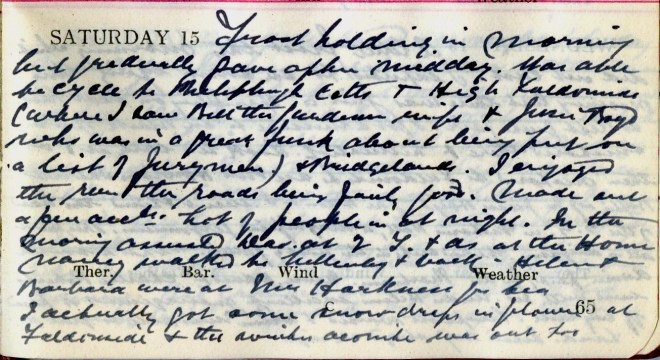 Weather
SATURDAY 15 Frost holding in morning
but gradually gave after midday. Was able
to cycle to Philiphaugh Cotts & High Faldonside
(where I saw Bett the gardeners wife & Jessie Boyd
who was in a great funk about being put on
a list of Jurymen) & Bridgelands. I enjoyed
the run the roads being fairly good. Made out
a few accts. Lot of people in at night. In the
morning assisted at & as at the Home
Nancy walked to & back - Helen &
Ther. Bar. Wind Weather
Barbara were at Mrs Harkness for tea
I actually got some snowdrops in flower at
65
Faldonside & the winter aconite was out too